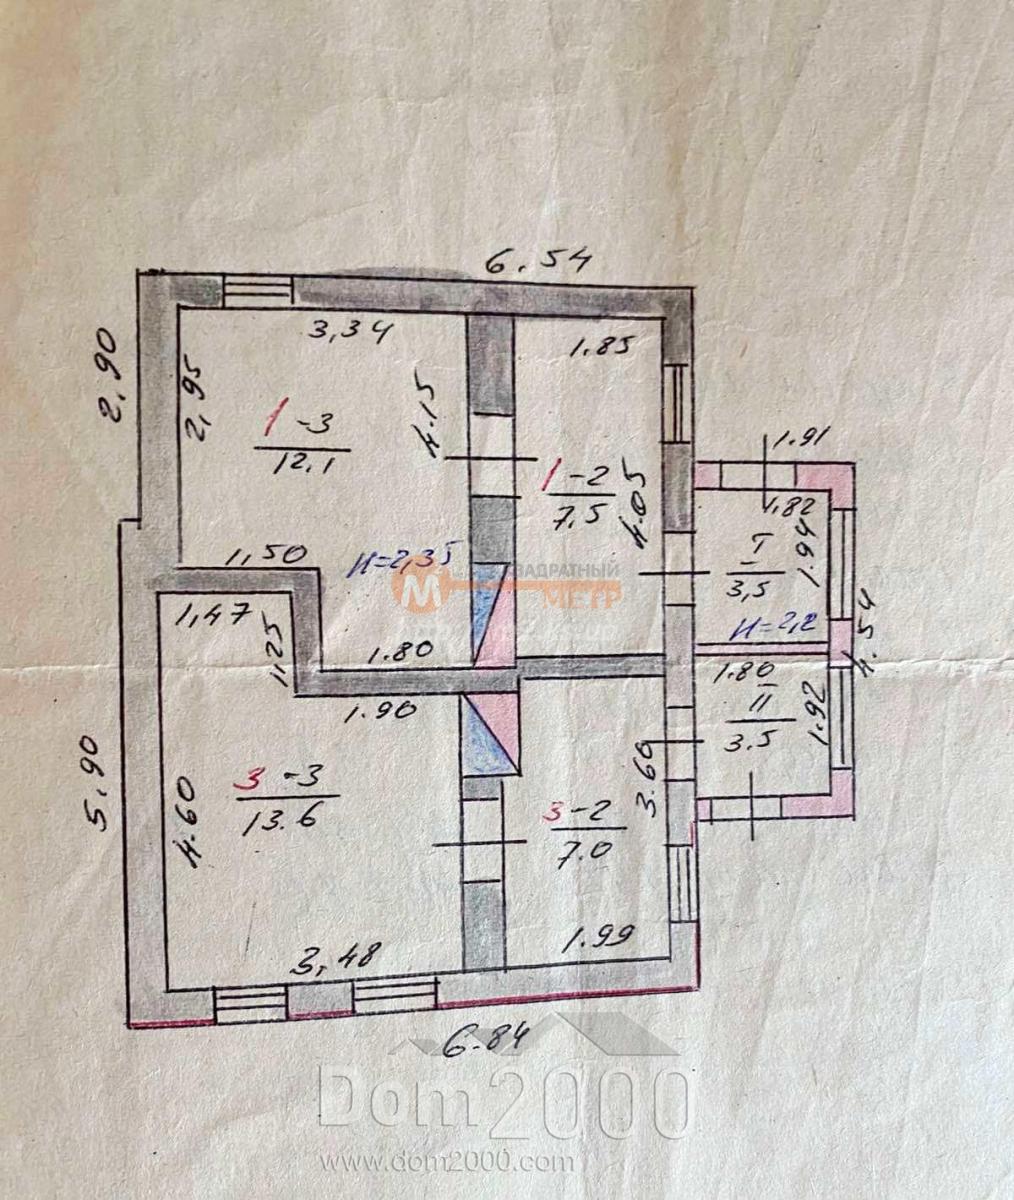 6.54
3,34
1.85
2.90
2,95
4.15
1-3
12.1
1-2
7,5
4.05
1.91
1,82
1.94
I
3,5
н=2,2
1,50
н=2,35
КВАДРАТНЫЙ
МЕТР
1,47
1,25
1.80
1.90
4.54
1.80
II
3.5
1,92
5,90
4.60
3-3
13.6
3.60
3-2
7.0
3,48
1.99
6.84
Dom2000
www.dom2000.com